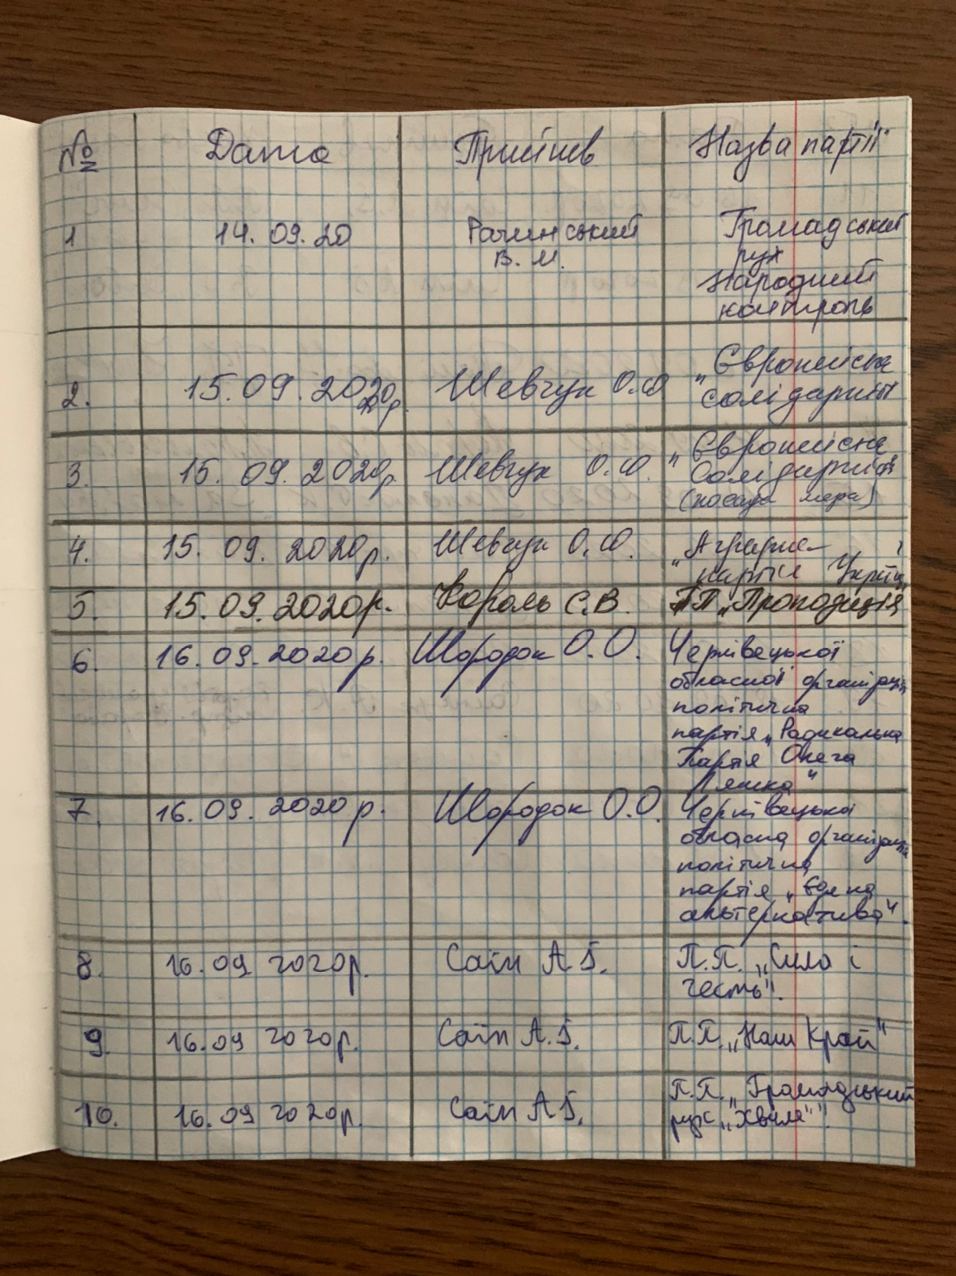 № Дата Прийняв Назва партії
1 14.09.20 Рачинський Громадський
В. М. рух
Народний
контроль
2. 15.09.2020 Шевчук О.Ю "Європейська
2020р. солідарність
3. 15.09.2020р Шевчук О.Ю. "Європейська
Солідарність
(посада мера)
4. 15.09.2020р. Шевчук О.Ю. "Аграрна
партія Україн
5. 15.09.2020р. Король С.В. ПП „Пропозиція
6. 16.09.2020р. Шородок О.О. Чернівецької
обласної організації
політична
партія „Радикальна
Партія Олега
Ляшка"
7. 16.09.2020р. Шородок О.О. Чернівецької
обласна організація
політична
партія „Єдина
альтернатива".
8. 16.09 2020р. Саїн А.Б. П.П. „Сила і
Честь".
9. 16.09 2020р. Саїн А.Б. П.П. „Наш Край"
10. 16.09 2020р. Саїн А.Б. П.П. „Громадський
рух „Хвиля""